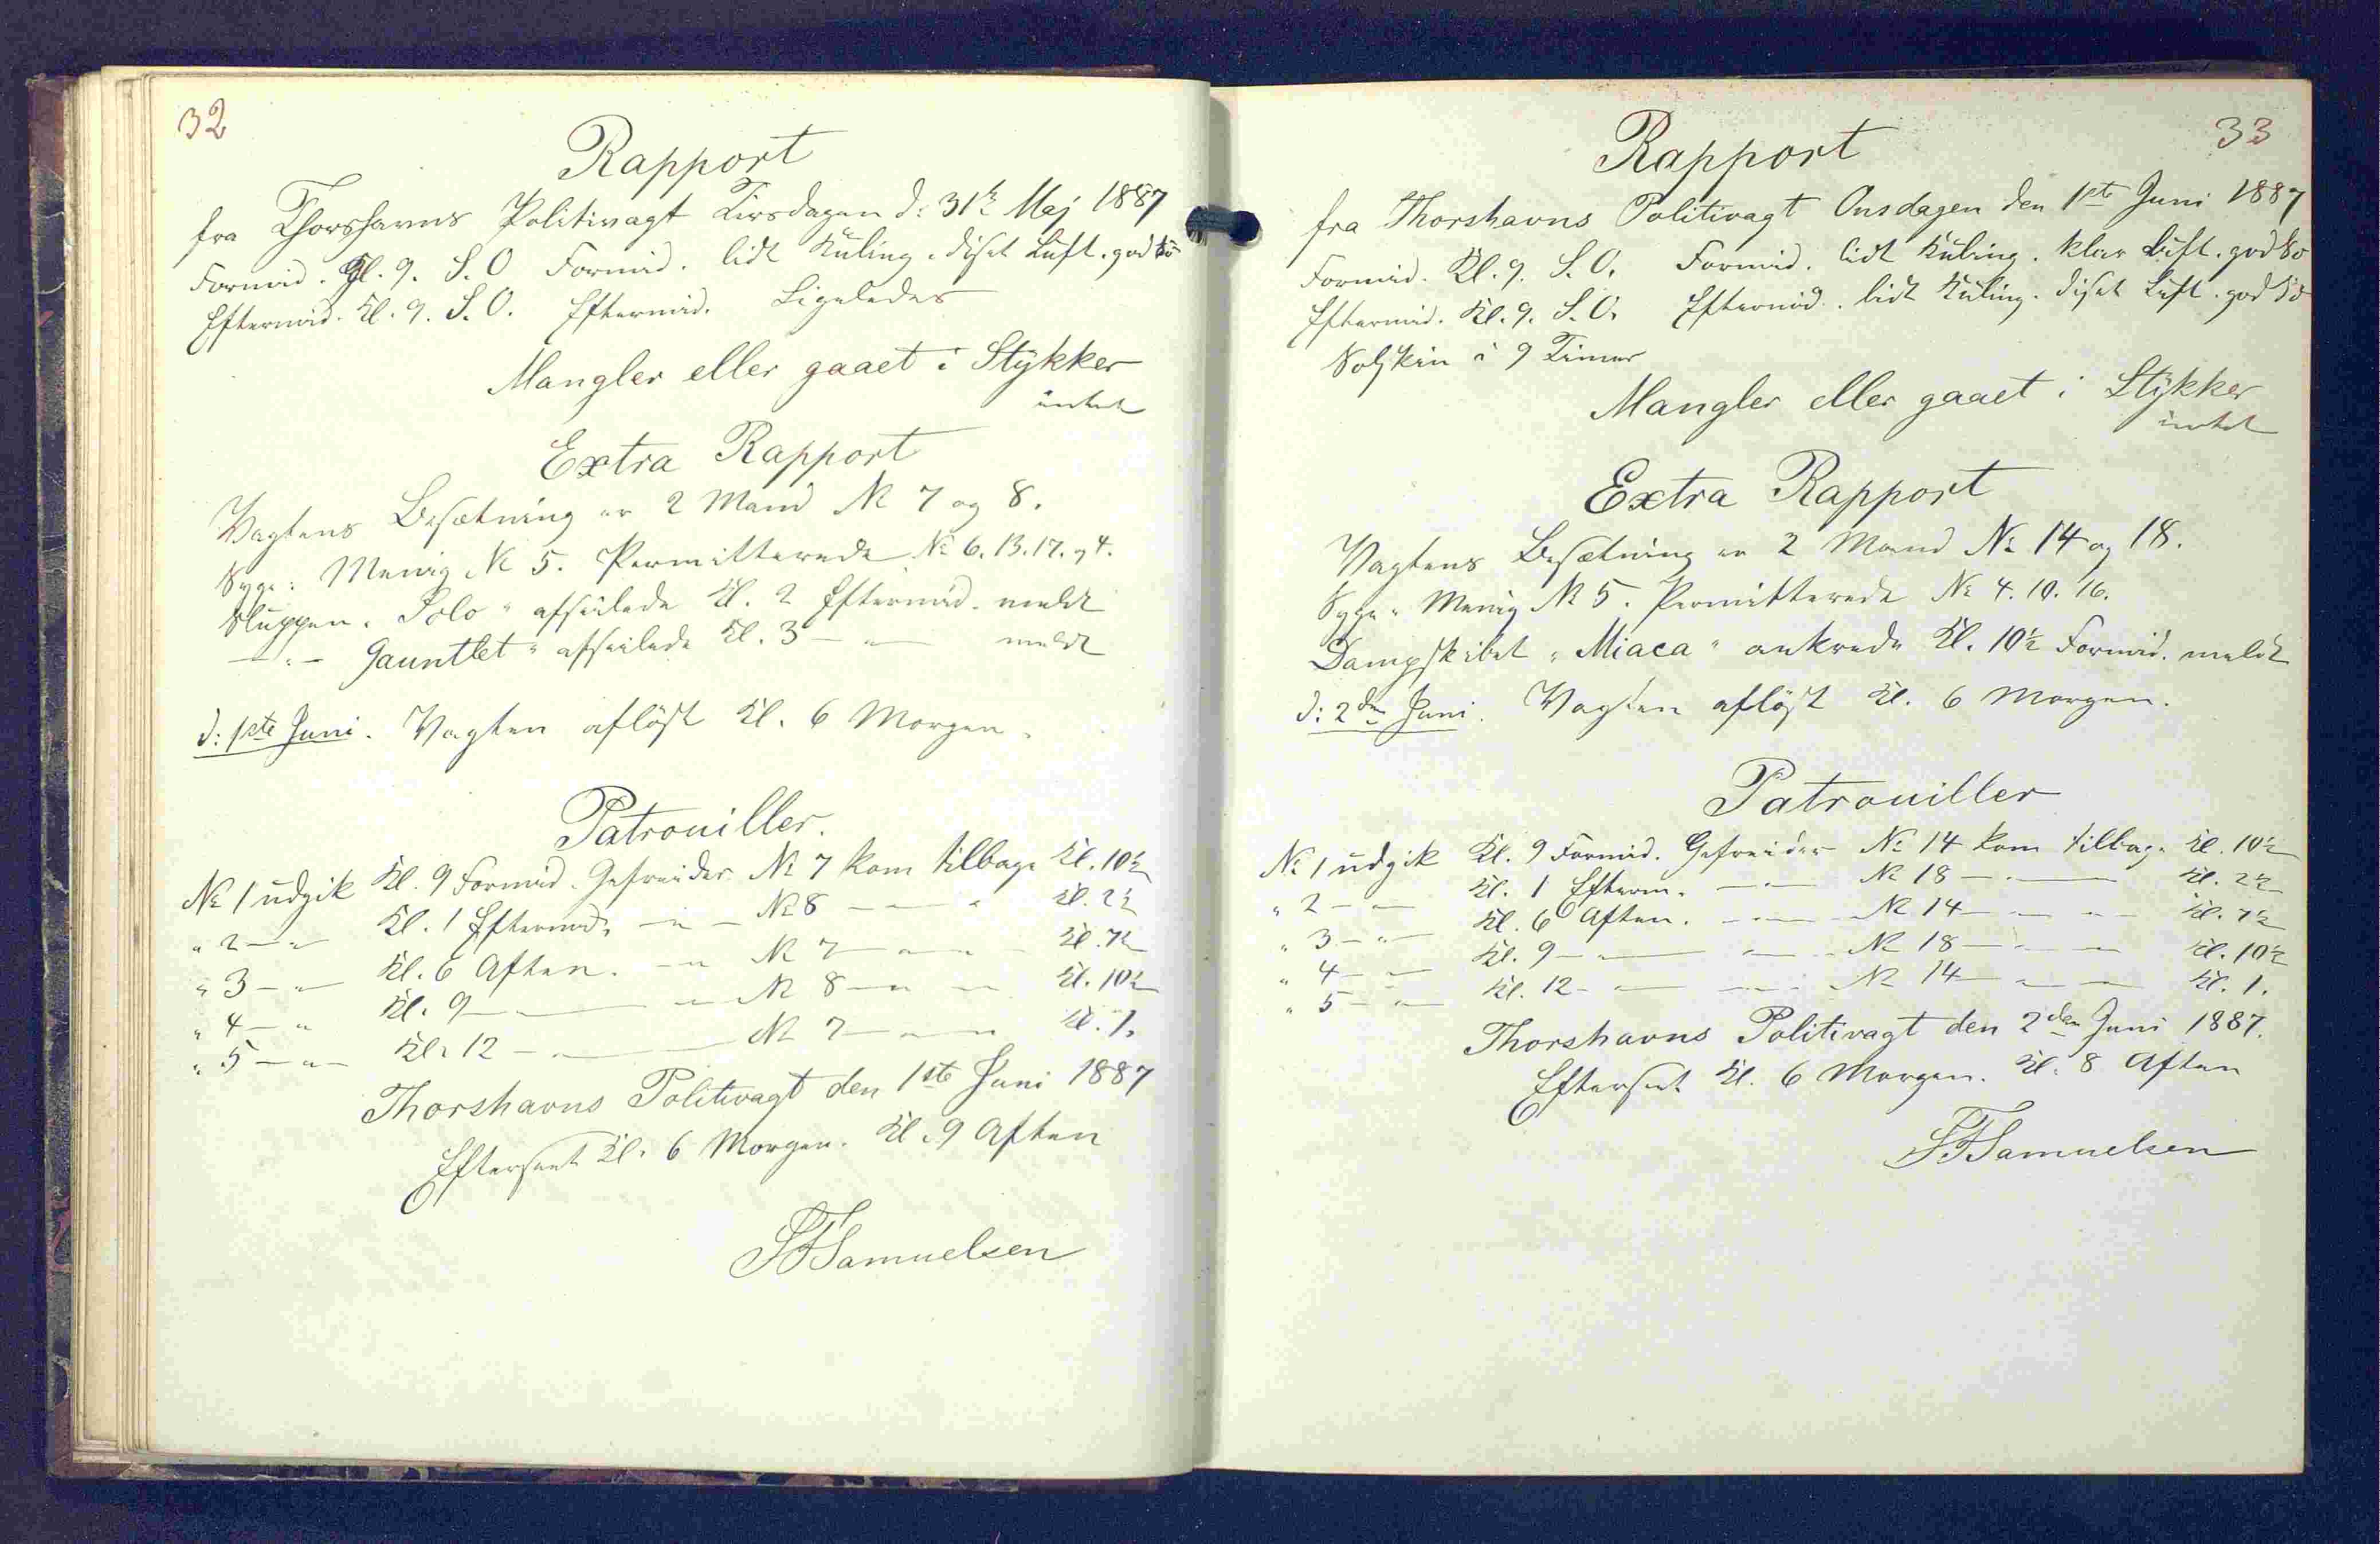 32
Rapport
fra Thorshavns Politivagt Tirsdagen d: 31te Maj 1887
Formid. Kl. 9. S.O Formid. lidt Kuling. diset Luft. god Sö
Eftermid. Kl. 9. S.O. Eftermid. Ligeledes
Mangler eller gaaet i Stykker
intet
Extra Rapport
Vagtens Besætning er 2 Mand № 7 og 8.
Syge: Menig № 5. Permitterede № 6. 13. 17. og 4.
Sluppen "Solo" afseilede Kl. 2 Eftermid. meldt
— " — Gauntlet" afseilede Kl. 3 — " — meldt
d: 1ste Juni. Vagten aflöst Kl. 6 Morgen.
Patrouiller.
№ 1 udgik Kl. 9 Formid. Gefreider № 7 kom tilbage Kl. 10½
" 2 — " — Kl. 1 Eftermid. — " — № 8 — " — " Kl. 2½
" 3 — " — Kl. 6 Aften. — " № 7 — " — " — Kl. 7½
" 4 — " Kl. 9 — " — " — № 8 — " — " Kl. 10½
" 5 — " — Kl. 12 — " — № 7 — " — " Kl. 1.
Thorshavns Politivagt den 1ste Juni 1887
Efterseet Kl. 6 Morgen. Kl. 9 Aften
Samuelsen
33
Rapport
fra Thorshavns Politivagt Onsdagen den 1ste Juni 1887
Formid. Kl. 9. S.O. Formid. lidt Kuling. klar Luft. god Sö
Eftermid. Kl. 9. S.O. Eftermid. lidt Kuling. diset Luft. god Sö
Solskin i 9 Timer
Mangler eller gaaet i Stykker
intet
Extra Rapport
Vagtens Besætning er 2 Mand № 14 og 18.
Syge: Menig № 5. Permitterede № 4. 10. 16.
Dampskibet "Miaca" ankrede Kl. 10½ Formid. meldt
d: 2den Juni. Vagten aflöst Kl. 6 Morgen.
Patrouiller
№ 1 udgik Kl. 9 Formid. Gefreider № 14 kom tilbage Kl. 10½
" 2 — " — Kl. 1 Efterm. — " — № 18 — " — Kl. 2½
" 3 — " — Kl. 6 Aften. — " — № 14 — " — " — Kl. 7½
" 4 — " — Kl. 9 — " — " — № 18 — " — " Kl. 10½
" 5 — " — Kl. 12 — " — " — № 14 — " — " Kl. 1.
Thorshavns Politivagt den 2den Juni 1887.
Efterseet Kl. 6 Morgen. Kl. 8 Aften
Samuelsen